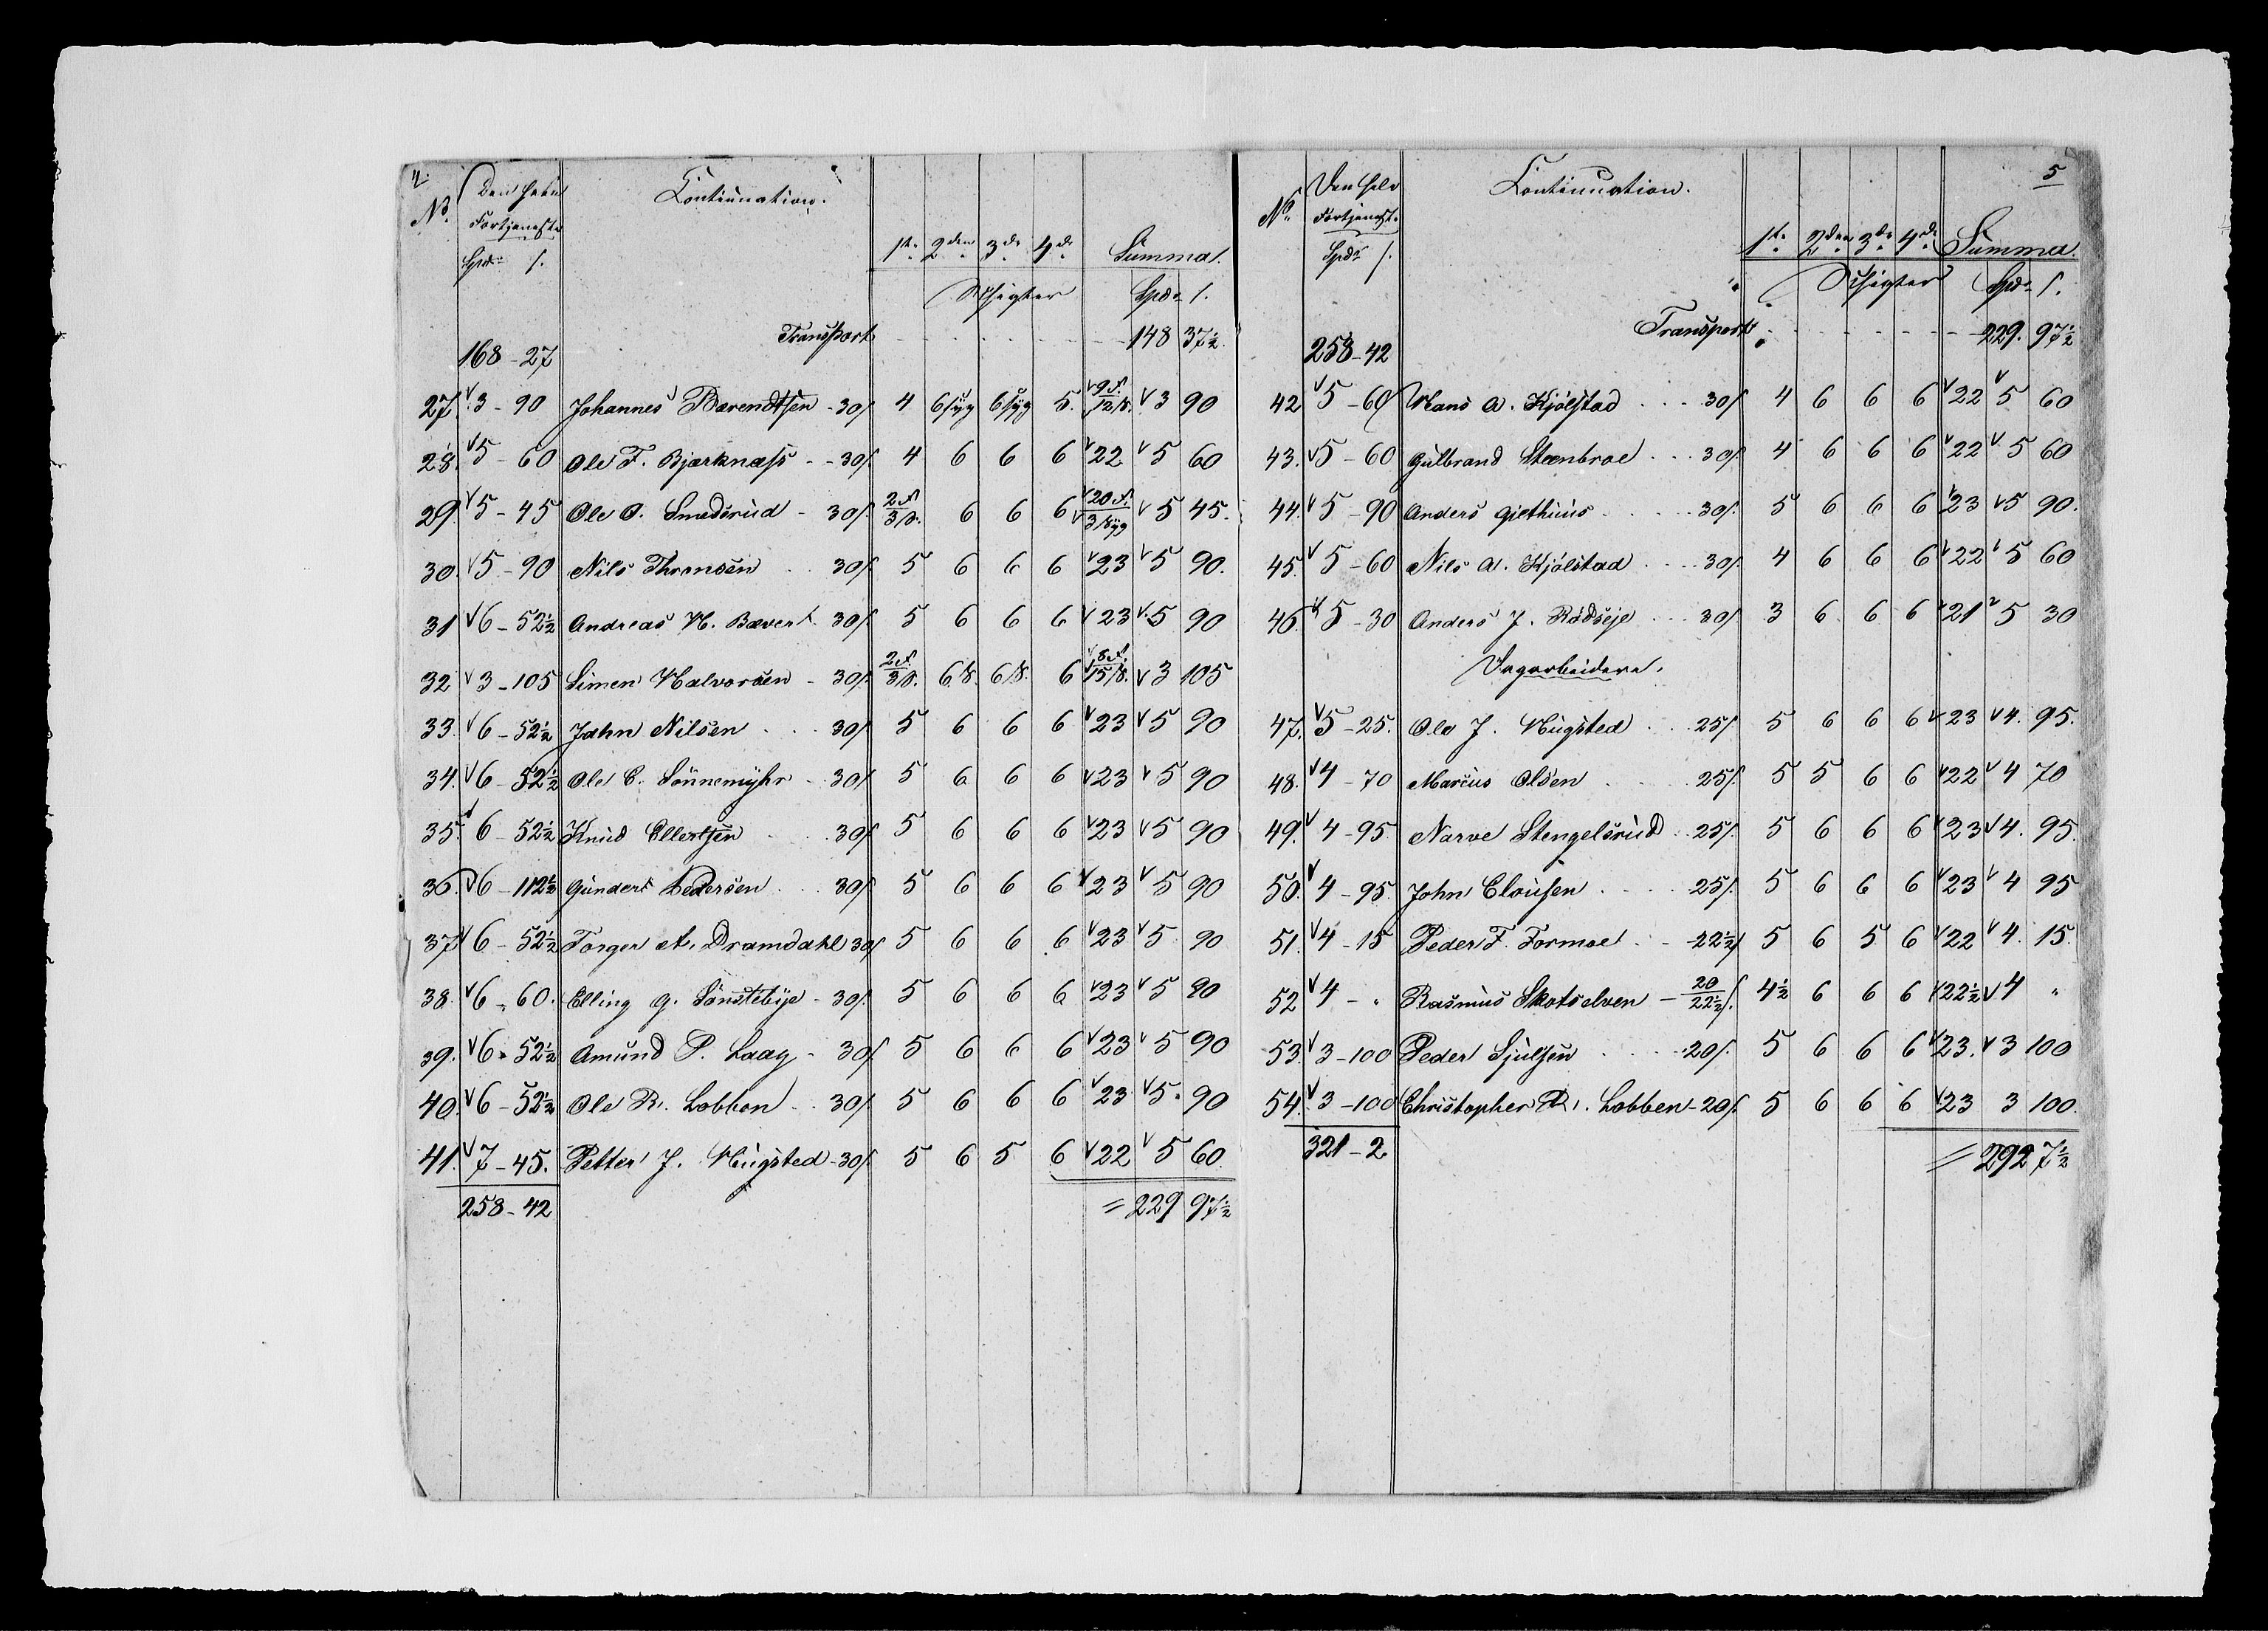 4.
No. Den hele Fortjeneste Spdr s. Continuation. 1ste 2den 3de 4de Summa.
Schigter Spdr s.
Transport 148 37½
168-27
27. 3-90 Johannes Barendtsen - 30s 4 6 syg 6 syg 5. 9 A. 12/s. 3 90
28. 5-60 Ole F. Bjærknæss - - 30s. 4 6 6 6 22 5 60
29. 5-45 Ole O. Smedsrud - 30s. 2 A. 3/s. 6 6 6 20 A. 3/syg 5 45.
30. 5-90 Nils Thronsen . . 30s. 5 6 6 6 23 5 90.
31 6-52½ Andreas H. Bævert 30s. 5 6 6 6 23 5 90
32 3-105 Simen Halvorsen - 30s. 2 A. 3/s. 6/s. 6/s. 6 8 A. 15/s. 3 105
33. 6-52½ Jahn Nilsen . . . 30s 5 6 6 6 23 5 90
34. 6-52½ Ole C. Sønnemyhr - 30s 5 6 6 6 23 5 90
35. 6-52½ Knud Ellertsen . . . 30s 5 6 6 6 23 5 90
36. 6-112½ Gunder Pedersen . . . 30s. 5 6 6 6 23 5 90
37 6-52½ Torger A. Dramdahl 30s 5 6 6 6 23 5 90
38. 6-60. Elling G. Sønstebye - 30s. 5 6 6 6 23 5 90
39. 6-52½ Amund P. Laag - 30s. 5 6 6 6 23 5 90
40. 6-52½ Ole R. Lobben . . 30s. 5 6 6 6 23 5. 90
41. 7-45. Petter J. Hugsted - 30s. 5 6 5 6 22 5 60.
258-42 = 229 97½
5
No. Den hele Fortjeneste Spdr s. Continuation. 1ste 2den 3de 4de Summa.
Schigter Spdr s.
Transport . 229. 97½
258-42
42 5-60 Hans A. Kjølstad . . . 30s 4 6 6 6 22 5 60
43. 5-60 Gulbrand Steenbroe . . . 30s 4 6 6 6 22 5 60
44. 5-90 Anders Giethuus . . . . 30s. 5 6 6 6 23 5 90.
45. 5-60 Nils A. Kjølstad . . . . 30s. 4 6 6 6 22 5 60
46. 5-30 Anders J. Rødseje . . . 30s. 3 6 6 6 21 5 30
Dagarbeidere.
47. 5-25. Ole J. Hugsted . . . 25s. 5 6 6 6 23 4. 95.
48. 4-70 Marcus Olsen . . . 25s. 5 5 6 6 22 4 70
49. 4-95 Narve Stengelsrud . . 25s. 5 6 6 6 23 4. 95.
50. 4-95. John Clousen . . . . 25s. 5 6 6 6 23 4 95
51. 4-15 Peder F. Formoe . . - 22½s 5 6 5 6 22 4. 15.
52 4 - " Rasmus Skotselven - 20/22½ s. 4½ 6 6 6 22½ 4 "
53. 3-100 Peder Sjulsen . . . . 20s. 5 6 6 6 23. 3 100
54. 3-100 Christopher R. Lobben - 20s. 5 6 6 6 23 3 100.
321-2 = 292 7½